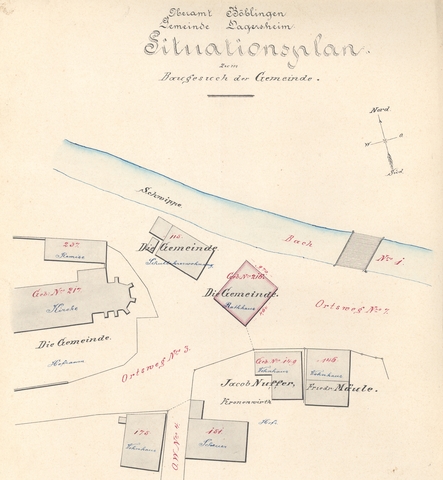 Oberamt Böblingen
Gemeinde Dagersheim
Situationsplan
zum
Baugesuch der Gemeinde.
Nord
W
O
Süd
Schwippe
Bach
No. 1
237.
Remise
115
Die Gemeinde
Geb. No. 217.
Kirche
Geb. No.
Die Gemeinde.
Rathhaus
Ortsweg No. 2.
Die Gemeinde.
Hofraum
Ortsweg No. 3.
Geb. No. 149
Wohnhaus
148
Wohnhaus
Jacob Nuffer,
Kronenwirth
Friedr. Mäule.
Hof
175
Wohnhaus
O.W. No. 4
151.
Scheuer